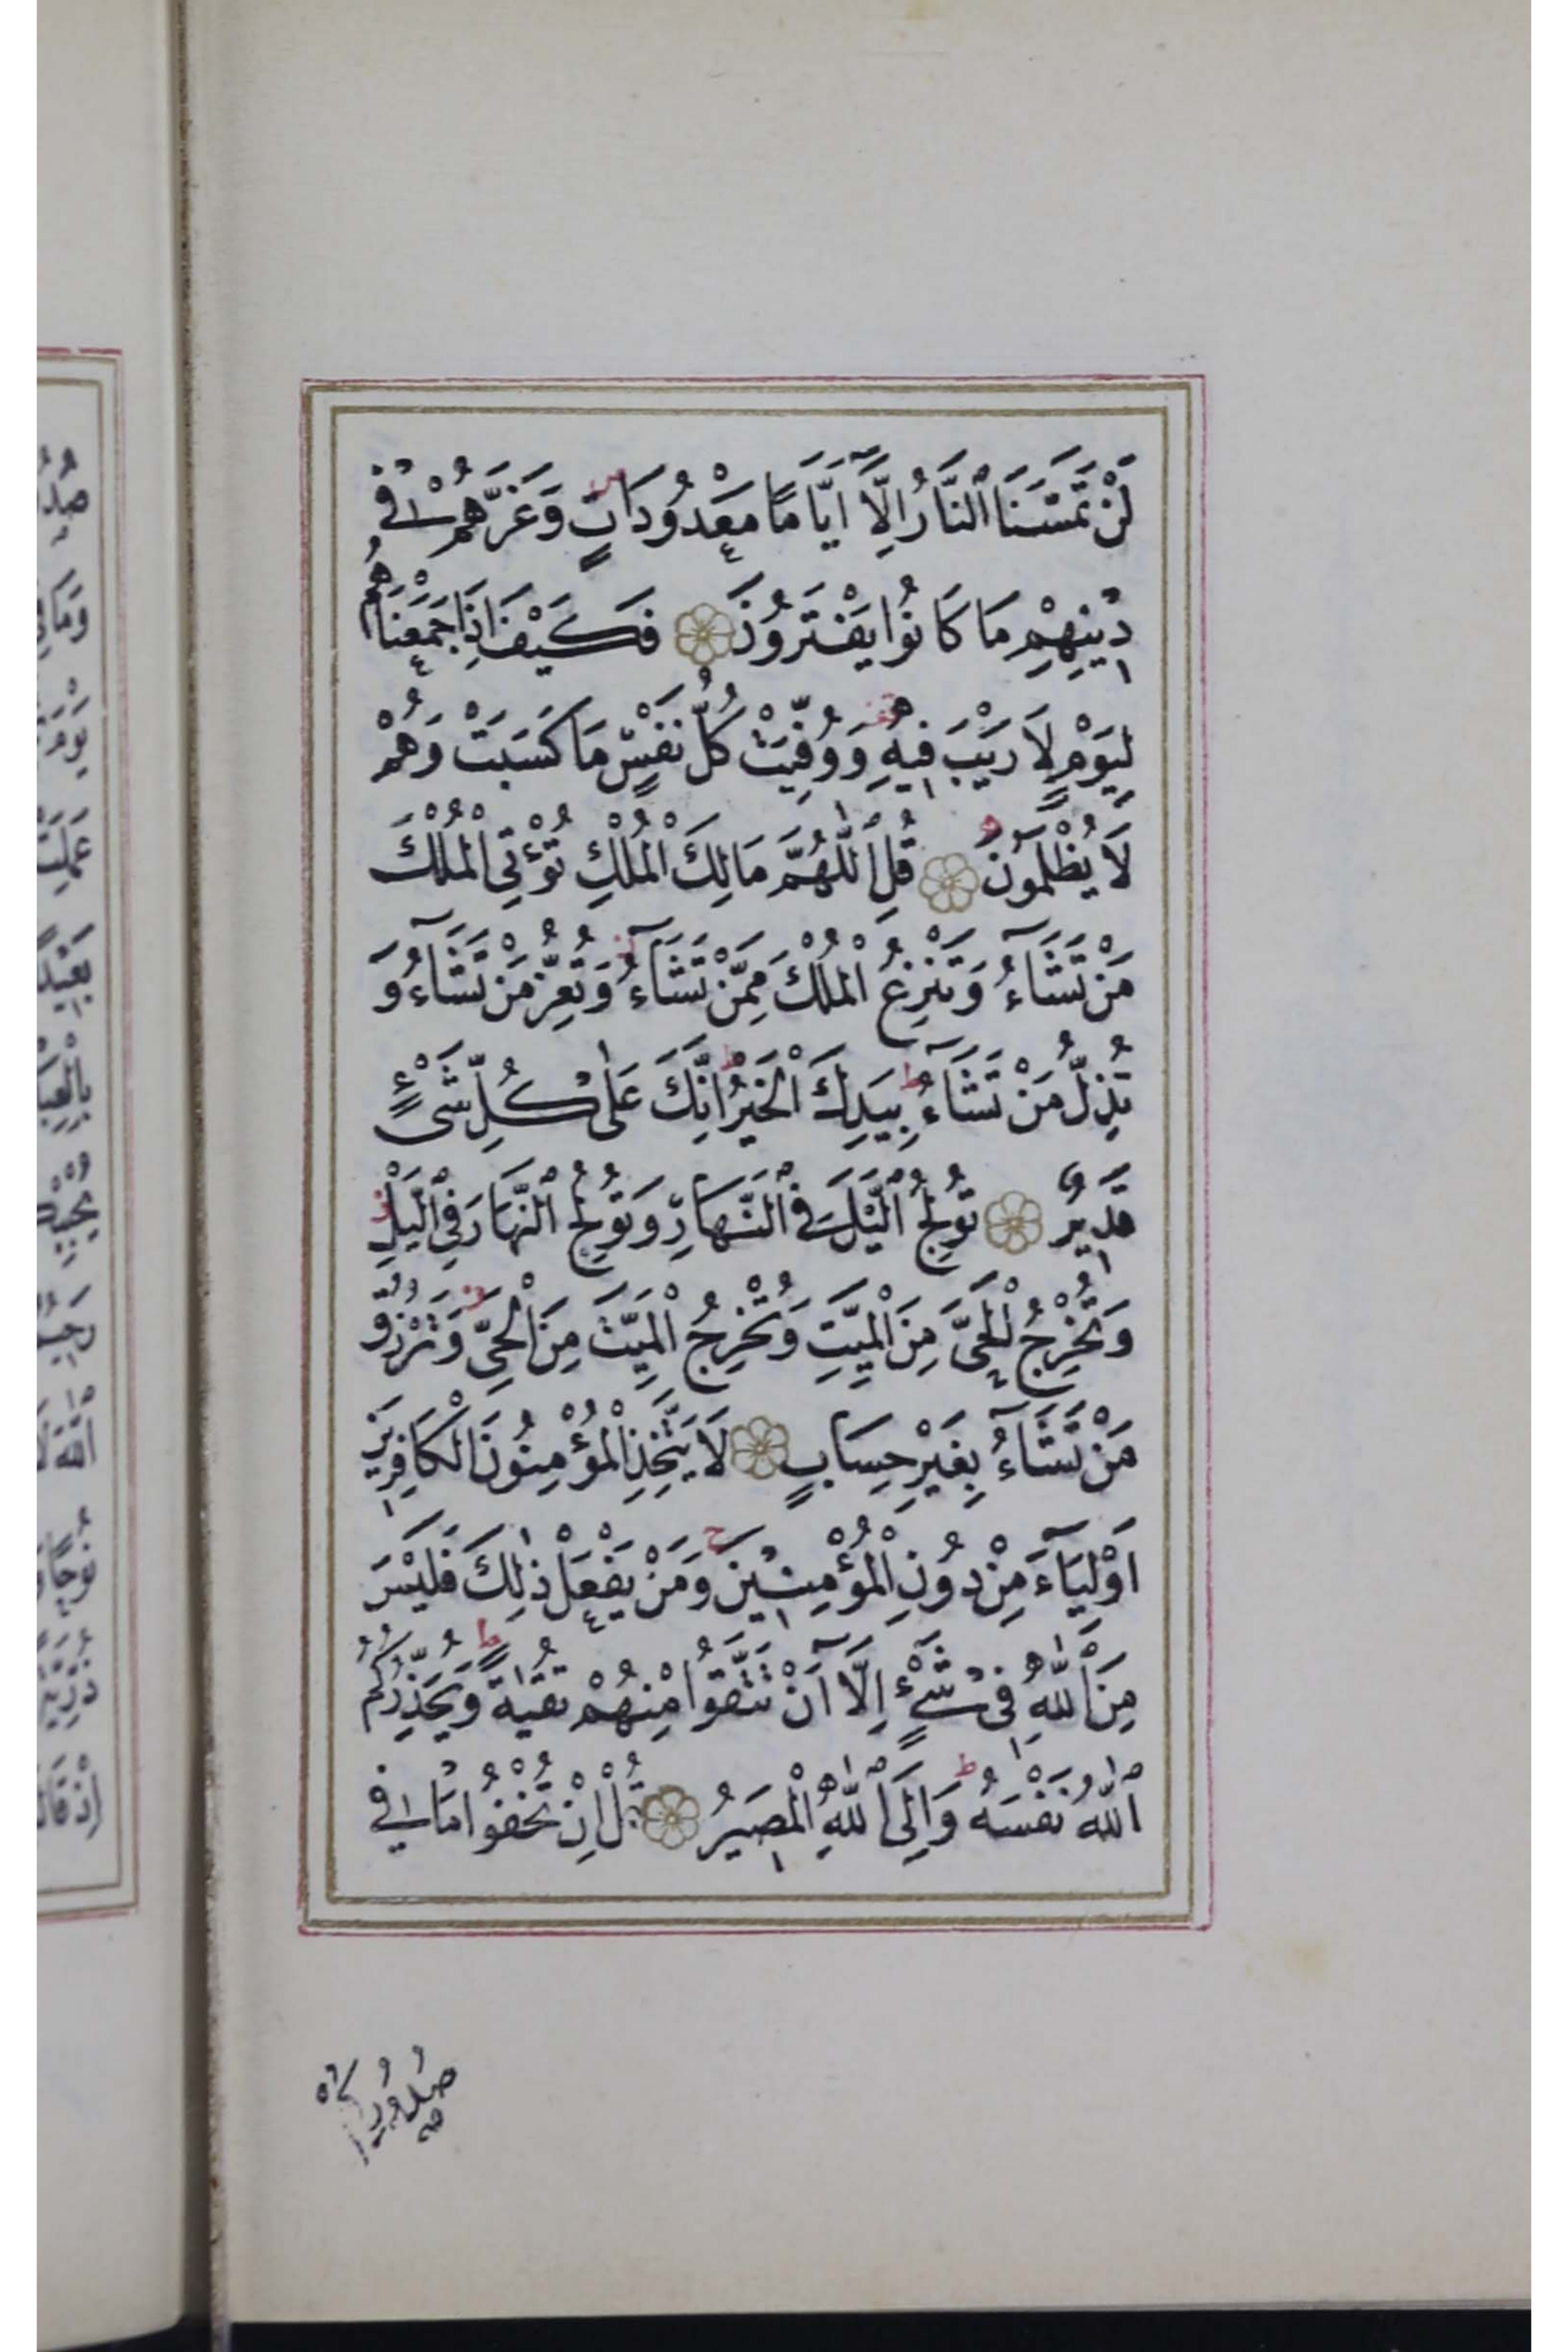 لَنْ تَمَسَّنَا ٱلنَّارُ اِلَّآ اَيَّامًا مَعْدُودَاتٍ وَغَرَّهُمْ فٖى
دٖينِهِمْ مَا كَانُوا يَفْتَرُونَ فَكَيْفَ اِذَا جَمَعْنَاهُمْ
لِيَوْمٍ لَا رَيْبَ فٖيهِ وَوُفِّيَتْ كُلُّ نَفْسٍ مَا كَسَبَتْ وَهُمْ
لَا يُظْلَمُونَ قُلِ ٱللّٰهُمَّ مَالِكَ ٱلْمُلْكِ تُؤْتِى ٱلْمُلْكَ
مَنْ تَشَآءُ وَتَنْزِعُ ٱلْمُلْكَ مِمَّنْ تَشَآءُ وَتُعِزُّ مَنْ تَشَآءُ وَ
تُذِلُّ مَنْ تَشَآءُ بِيَدِكَ ٱلْخَيْرُ اِنَّكَ عَلٰى كُلِّ شَىْءٍ
قَدٖيرٌ تُولِجُ ٱلَّيْلَ فِى ٱلنَّهَارِ وَتُولِجُ ٱلنَّهَارَ فِى ٱلَّيْلِ
وَتُخْرِجُ ٱلْحَىَّ مِنَ ٱلْمَيِّتِ وَتُخْرِجُ ٱلْمَيِّتَ مِنَ ٱلْحَىِّ وَتَرْزُقُ
مَنْ تَشَآءُ بِغَيْرِ حِسَابٍ لَا يَتَّخِذِ ٱلْمُؤْمِنُونَ ٱلْكَافِرٖينَ
اَوْلِيَآءَ مِنْ دُونِ ٱلْمُؤْمِنٖينَ وَمَنْ يَفْعَلْ ذٰلِكَ فَلَيْسَ
مِنَ ٱللّٰهِ فٖى شَىْءٍ اِلَّآ اَنْ تَتَّقُوا مِنْهُمْ تُقٰيةً وَيُحَذِّرُكُمُ
ٱللّٰهُ نَفْسَهُ وَاِلَى ٱللّٰهِ ٱلْمَصٖيرُ قُلْ اِنْ تُخْفُوا مَا فٖى
صُدُورِكُمْ